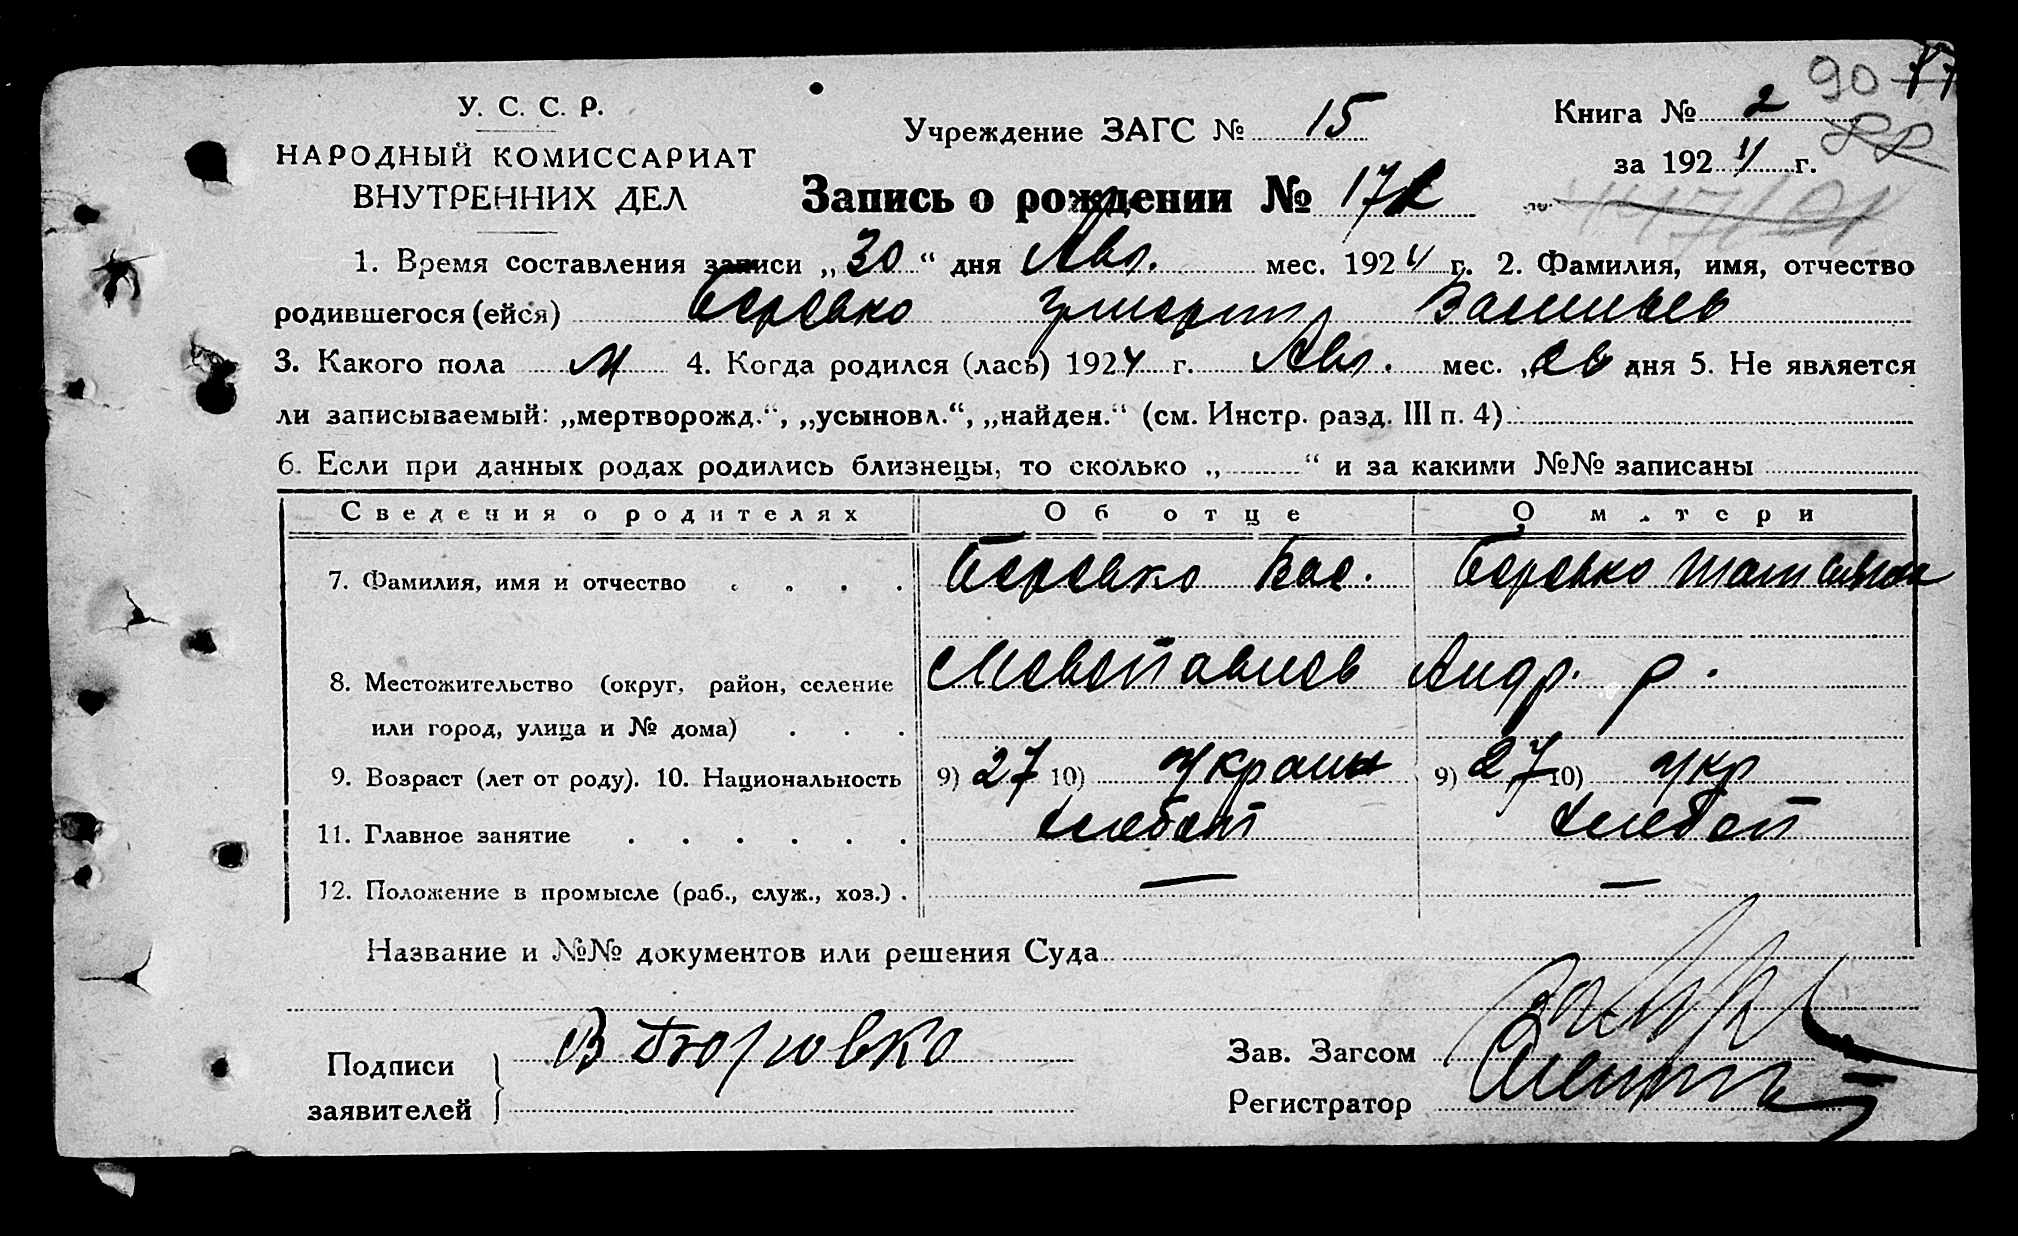 90 77
У. С. С. Р.
НАРОДНЫЙ КОМИССАРИАТ
ВНУТРЕННИХ ДЕЛ
Учреждение ЗАГС № 15
Книга № 2
за 1924 г.
Запись о рождении № 172
1. Время составления записи „30“ дня Авг. мес. 1924 г. 2. Фамилия, имя, отчество
родившегося (ейся) Боровко Григорий Васильев
3. Какого пола М 4. Когда родился (лась) 1924 г. Авг. мес. дня 5. Не является
ли записываемый: „мертворожд.“, „усыновл.“, „найден.“ (см. Инстр. разд. III п. 4)
6. Если при данных родах родились близнецы, то сколько „ “ и за какими №№ записаны
Сведения о родителях Об отце О матери
7. Фамилия, имя и отчество Боровко Вас. Боровко
8. Местожительство (округ, район, селение Андр. р.
или город, улица и № дома)
9. Возраст (лет от роду). 10. Национальность 9) 27 10) Украин 9) 27 10) Укр
11. Главное занятие хлебоп хлебоп
12. Положение в промысле (раб., служ., хоз.) — —
Название и №№ документов или решения Суда
Подписи
заявителей
В Боровко
Зав. Загсом
Регистратор